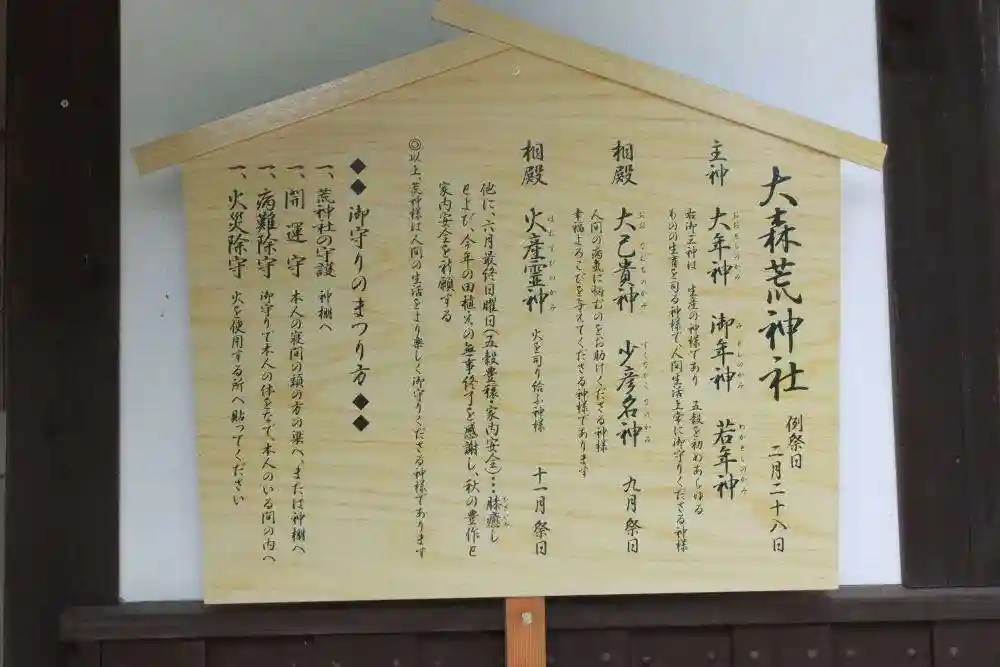 大森荒神社
例祭日
二月二十八日
主神 大年神 御年神 若年神
おおとしのかみ みとしのかみ わかとしのかみ
右御三神は 生産の神様であり 五穀を初めあらゆる
ものの生育を司る神様で、人間生活上常に御守りくださる神様
相殿 大己貴神 少彦名神 九月祭日
おおなむちのかみ すくなひこなのかみ
人間の病気に悩むのをお助けくださる神様
幸福よろこびを与えてくださる神様であります
相殿 火産霊神 火を司り給ふ神様 十一月祭日
ほむすびのかみ
他に、六月最終日曜日(五穀豊穣・家内安全)…膝癒し
ひざいやし
とよび、今年の田植えの無事終了を感謝し、秋の豊作と
家内安全を祈願する
◎以上、荒神様は人間の生活をより楽しく御守りくださる神様であります
◆◆ 御守りのまつり方 ◆◆
一、荒神社の守護 神棚へ
一、開運守 本人の寝間の頭の方の梁へ、または神棚へ
一、病難除守 御守りで本人の体をなで、本人のいる間の内へ
一、火災除守 火を使用する所へ貼ってください